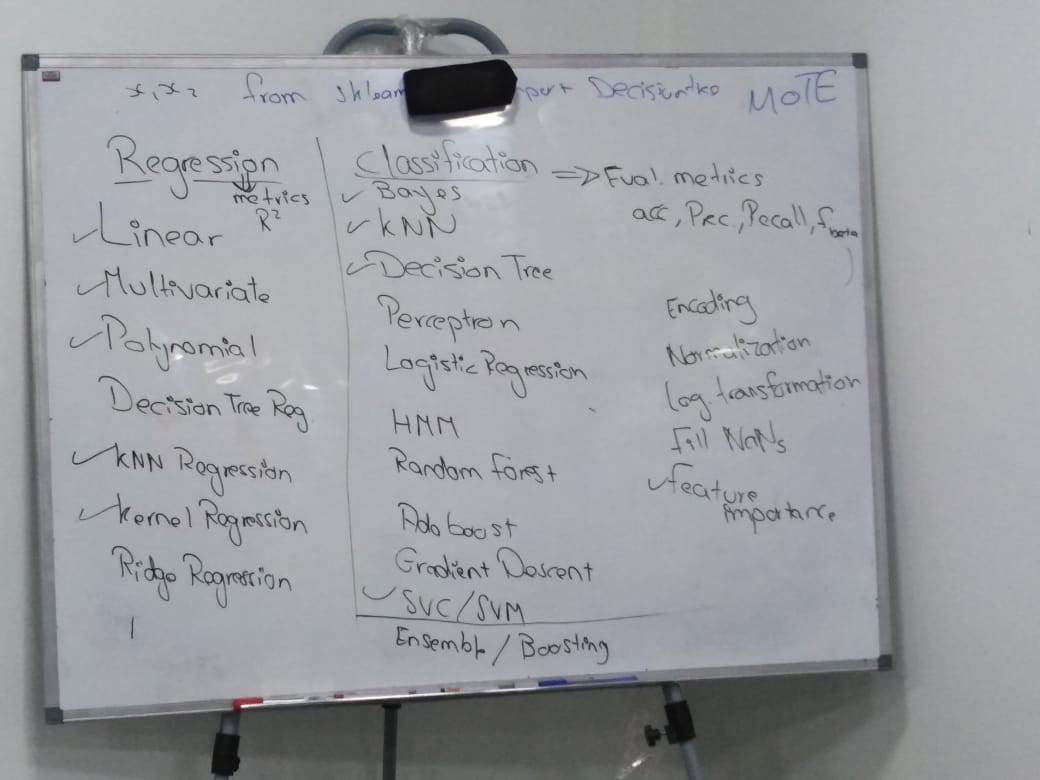 x, x₂ from sklear port Decision MOTE
Regression
metrics
R²
✓ Linear
✓ Multivariate
✓ Polynomial
Decision Tree Reg.
✓ KNN Regression
✓ Kernel Regression
Ridge Regression
Classification => Eval. metrics
acc, Prec, Recall, f beta
✓ Bayes
✓ KNN
✓ Decision Tree
Perceptron
Logistic Regression
HMM
Random Forest
Adaboost
Gradient Descent
✓ SVC/SVM
Ensemble / Boosting
Encoding
Normalization
Log. transformation
Fill NaNs
✓ feature
importance